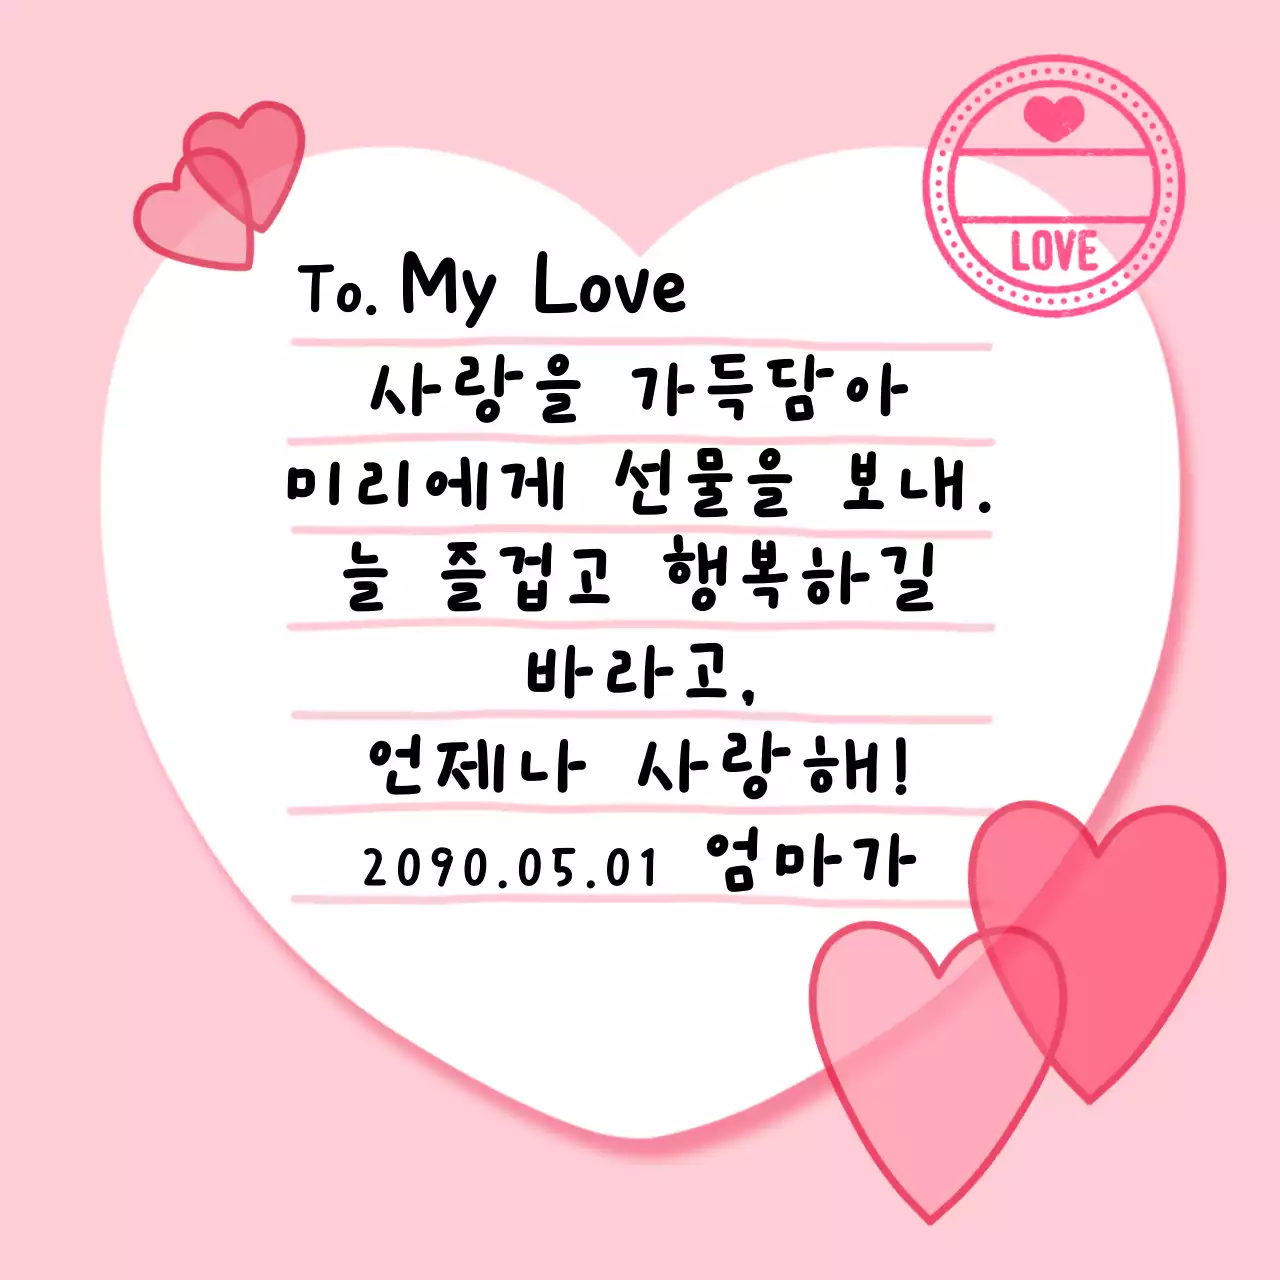 LOVE
To. My Love
사랑을 가득담아
미리에게 선물을 보내.
늘 즐겁고 행복하길
바라고,
언제나 사랑해!
2090.05.01 엄마가